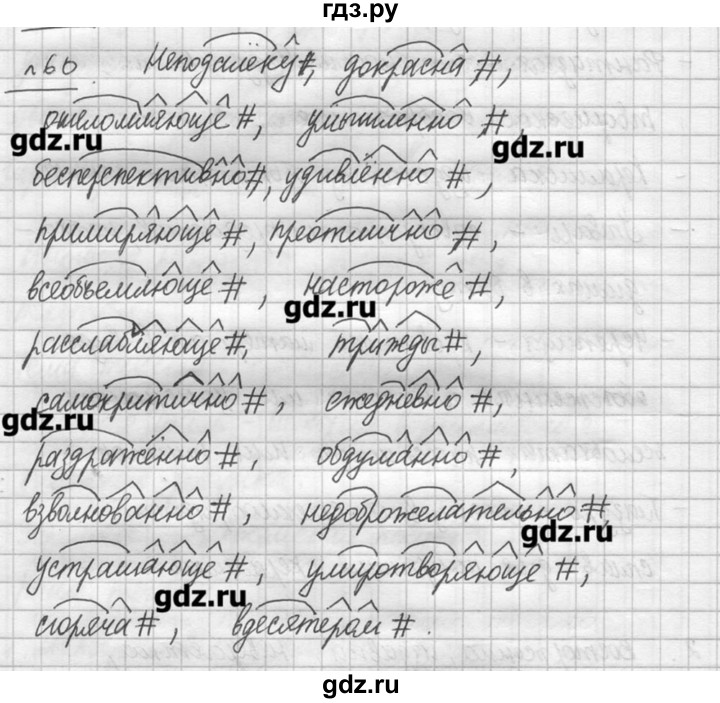 гдз.ру
№60. Неподалёку#, докрасна#,
ошеломляюще#, умышленно#,
gdz.ru gdz.ru
бесперспективно#, удивлённо#,
примиряюще#, преотлично#,
всеобъемлюще#, настороже#
gdz.ru
расслабляюще#, трижды#,
самокритично#, ежедневно#,
gdz.ru
раздражённо#, обдуманно#,
взволнованно#, недоброжелательно#,
gdz.ru
устрашающе#, умиротворяюще#,
gdz.ru
сгоряча#, вдесятером#.
gdz.ru